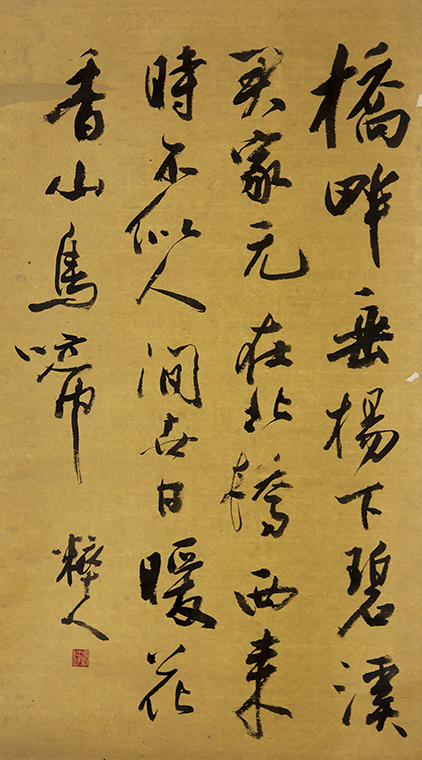 橋畔垂楊下碧溪
君家元在北橋西來
時不似人間世日暖花
香山鳥啼
粹人